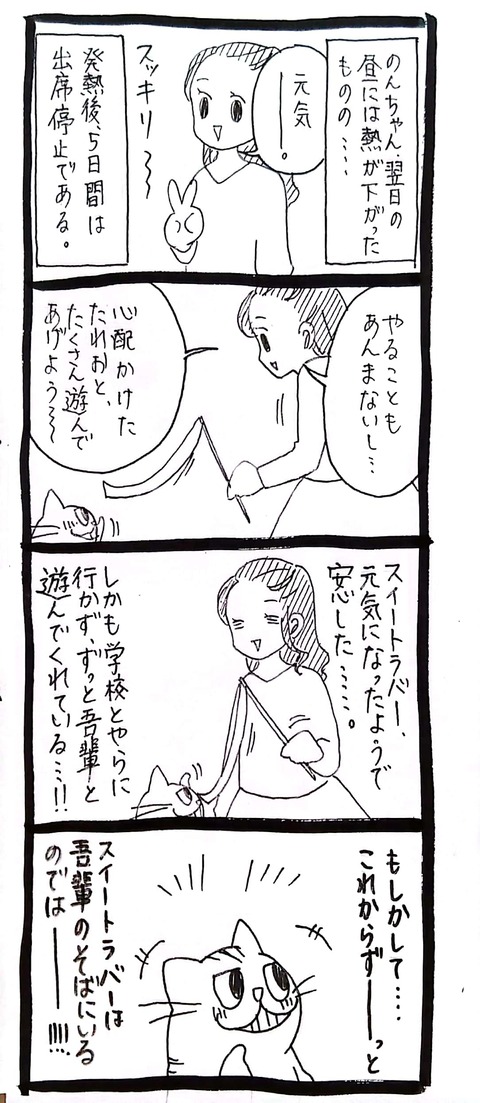 のんちゃん、翌日の
昼には熱が下がった
ものの‥‥
元気
ーー。
スッキリ〜〜
発熱後、5日間は
出席停止である。
やることも
あんまないし…
心配かけた
たれおと、
たくさん遊んで
あげよう〜〜
スイートラバー、
元気になったようで
安心した‥‥‥。
しかも学校とやらに
行かず、ずっと吾輩と
遊んでくれている…!!
もしかして‥‥
これからずーーっと
スイートラバーは
吾輩のそばにいる
のではーーー!!!!